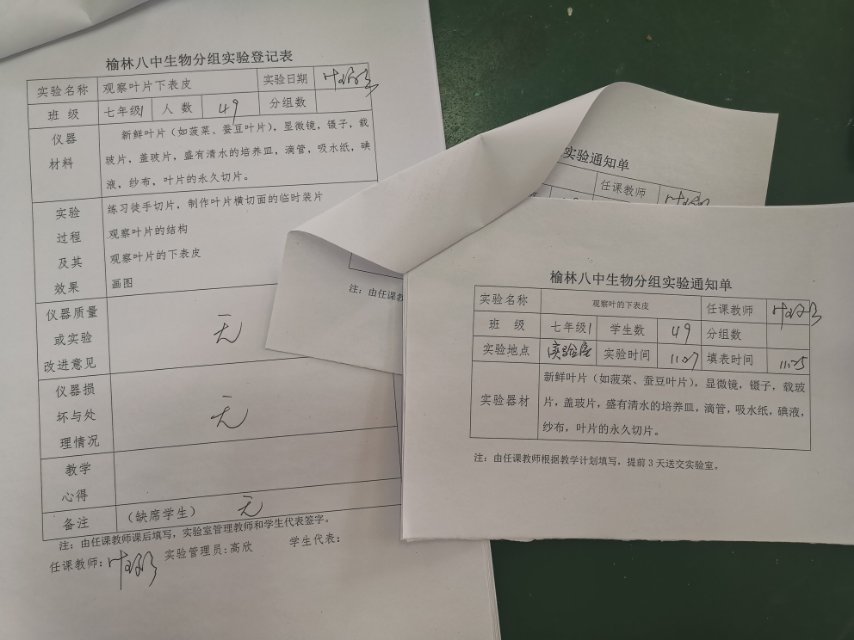 榆林八中生物分组实验登记表
实验名称 观察叶片下表皮 实验日期
班 级 七年级1 人 数 49 分组数
仪器材料
新鲜叶片（如菠菜、蚕豆叶片），显微镜，镊子，载
玻片，盖玻片，盛有清水的培养皿，滴管，吸水纸，碘
液，纱布，叶片的永久切片。
实验过程及其效果
练习徒手切片，制作叶片横切面的临时装片
观察叶片的结构
观察叶片的下表皮
画图
仪器质量或实验改进意见 无
仪器损坏与处理情况 无
教学心得
备注 （缺席学生） 无
注：由任课教师课后填写，实验室管理教师和学生代表签字。
任课教师： 实验管理员：高欣 学生代表：
实验通知单
任课教师
注：由任课教
榆林八中生物分组实验通知单
实验名称 观察叶的下表皮 任课教师
班 级 七年级1 学生数 49 分组数
实验地点 实验室 实验时间 11.27 填表时间 11.25
实验器材
新鲜叶片（如菠菜、蚕豆叶片），显微镜，镊子，载玻
片，盖玻片，盛有清水的培养皿，滴管，吸水纸，碘液，
纱布，叶片的永久切片。
注：由任课教师根据教学计划填写，提前 3 天送交实验室。